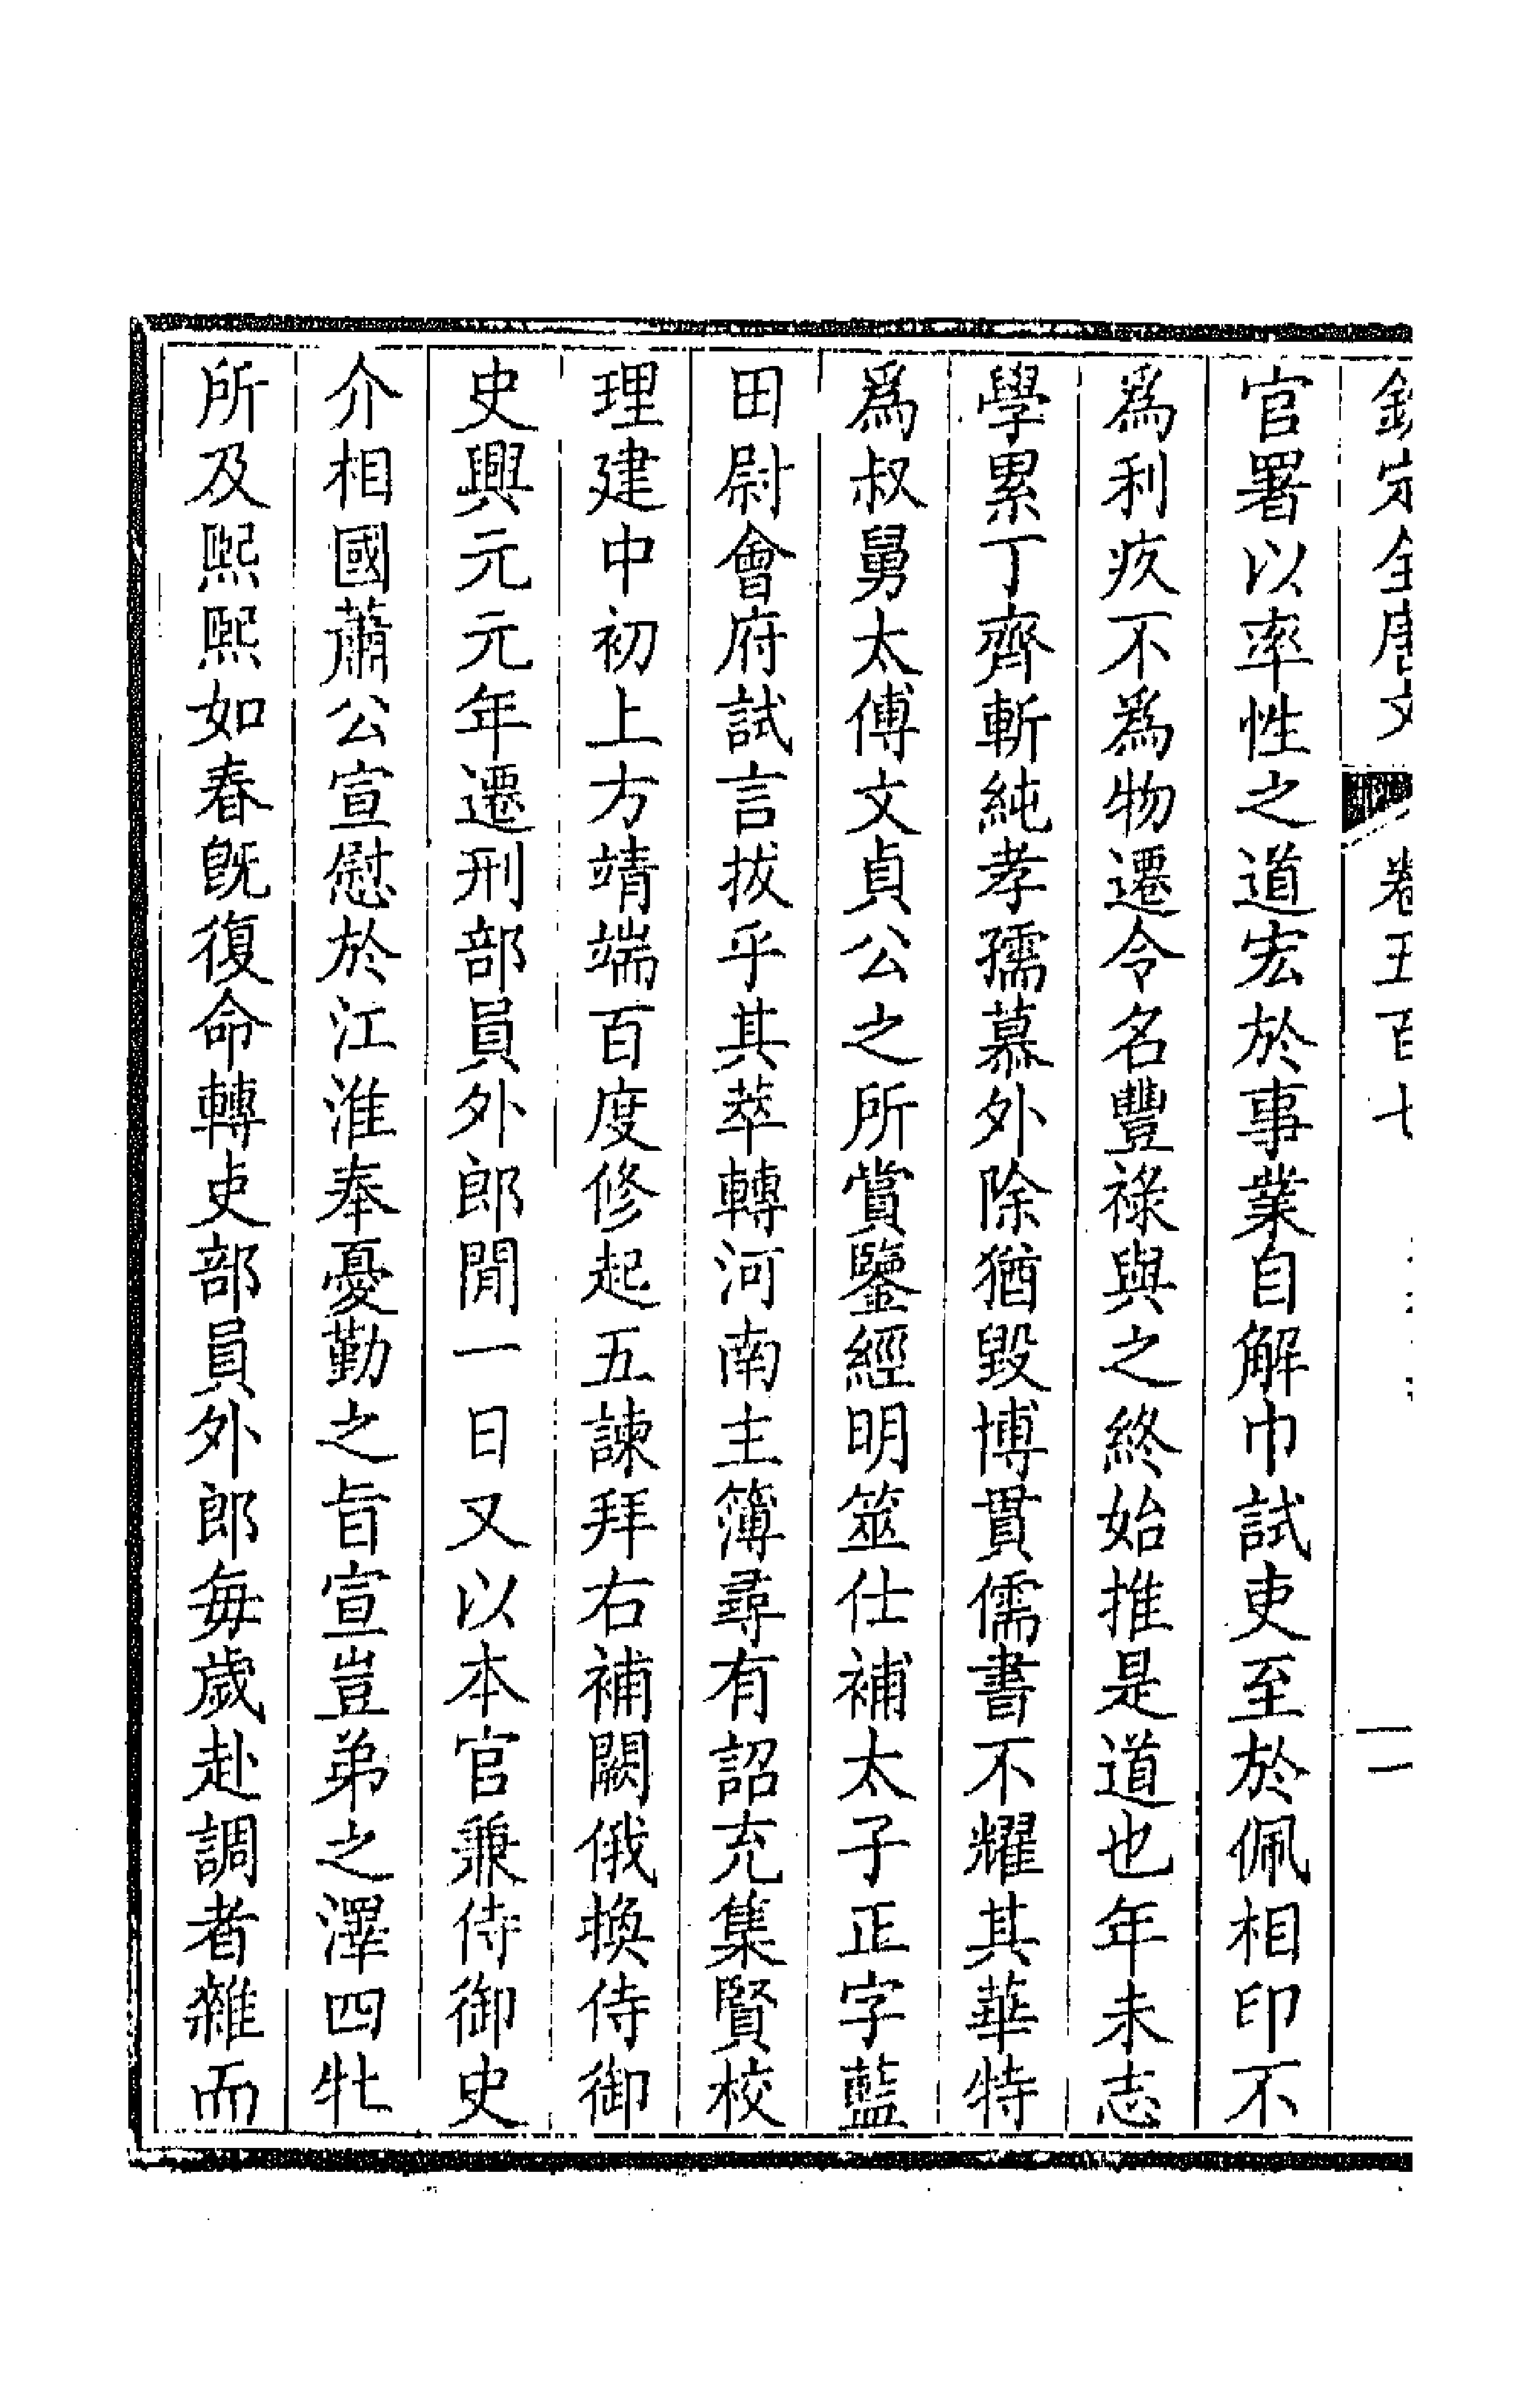 欽定全唐文 卷五百七 二
官署以率性之道宏於事業自解巾試吏至於佩相印不
爲利疚不爲物遷令名豐祿與之終始推是道也年未志
學累丁齊斬純孝孺慕外除猶毀博貫儒書不耀其華特
爲叔舅太傅文貞公之所賞鑒經明筮仕補太子正字藍
田尉會府試言拔乎其萃轉河南主簿尋有詔充集賢校
理建中初上方靖端百度修起五諫拜右補闕俄換侍御
史興元元年遷刑部員外郎閒一日又以本官兼侍御史
介相國蕭公宣慰於江淮奉憂勤之旨宣豈弟之澤四牡
所及熙熙如春旣復命轉吏部員外郎每歲赴調者雜而